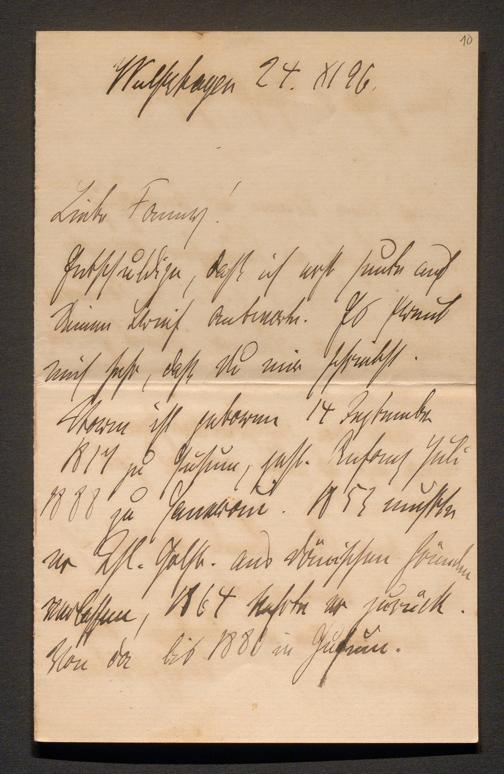 10
Wulfshagen 24. XI 96.
Liebe Fanny!
Entschuldige, daß ich erst heute auf
Deinen Brief antworte. Es freut
mich sehr, daß du mir schreibst.
Storm ist geboren 14 September
1817 zu Husum, gest. Anfang Juli
1888 zu Hanerau. 1853 mußte
er Schl. Holst. aus dänischen Händen
verlassen, 1864 kehrte er zurück.
Von da bis 1880 in Husum.